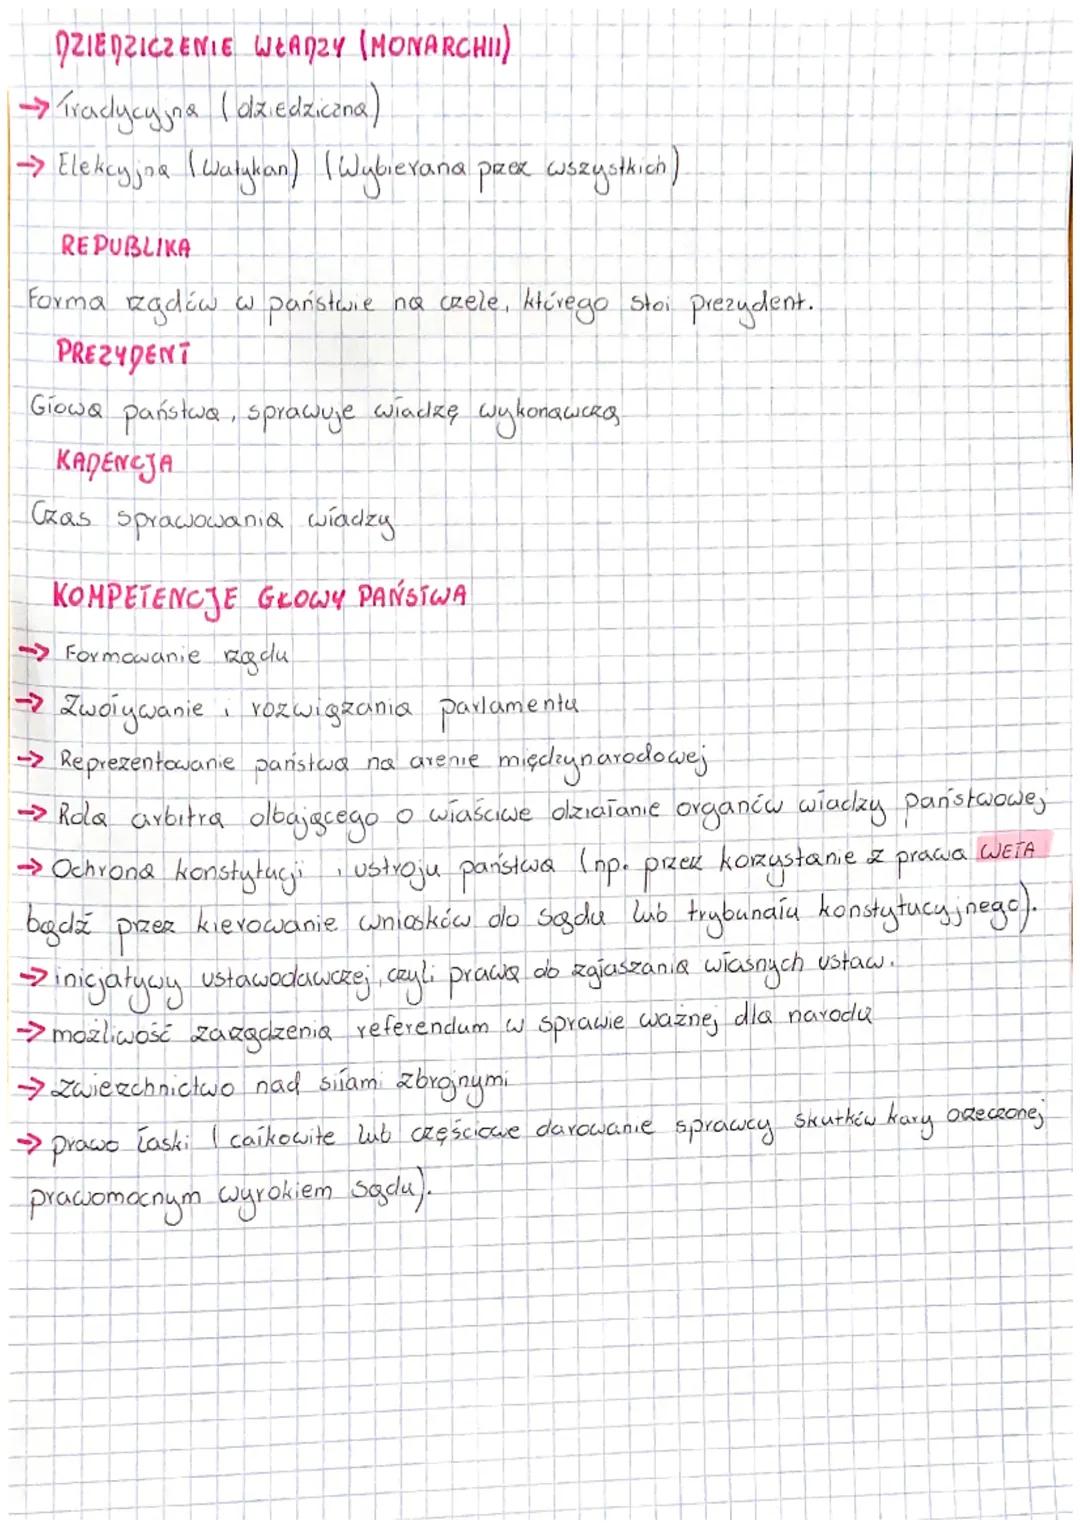 DZIEDZICZENIE WŁADZY (MONARCHII)
→ Tradycyjna (dziedziczna)
→ Elekcyjna (Watykan) (Wybierana przez wszystkich)
REPUBLIKA
Forma rządów w państwie na czele, którego stoi prezydent.
PREZYDENT
Głowa państwa, sprawuje władzę wykonawczą
KADENCJA
Czas sprawowania władzy
KOMPETENCJE GŁOWY PAŃSTWA
→ Formowanie rządu
→ Zwoływanie i rozwiązania parlamentu
→ Reprezentowanie państwa na arenie międzynarodowej
→ Rola arbitra dbającego o właściwe działanie organów władzy państwowej
→ Ochrona konstytucji i ustroju państwa (np. przez korzystanie z prawa WETA
bądź przez kierowanie wniosków do sądu lub trybunału konstytucyjnego).
→ inicjatywy ustawodawczej, czyli prawa do zgłaszania własnych ustaw.
→ możliwość zarządzenia referendum w sprawie ważnej dla narodu
→ zwierzchnictwo nad siłami zbrojnymi
→ prawo łaski (całkowite lub częściowe darowanie sprawcy skutków kary orzeczonej
prawomocnym wyrokiem sądu).